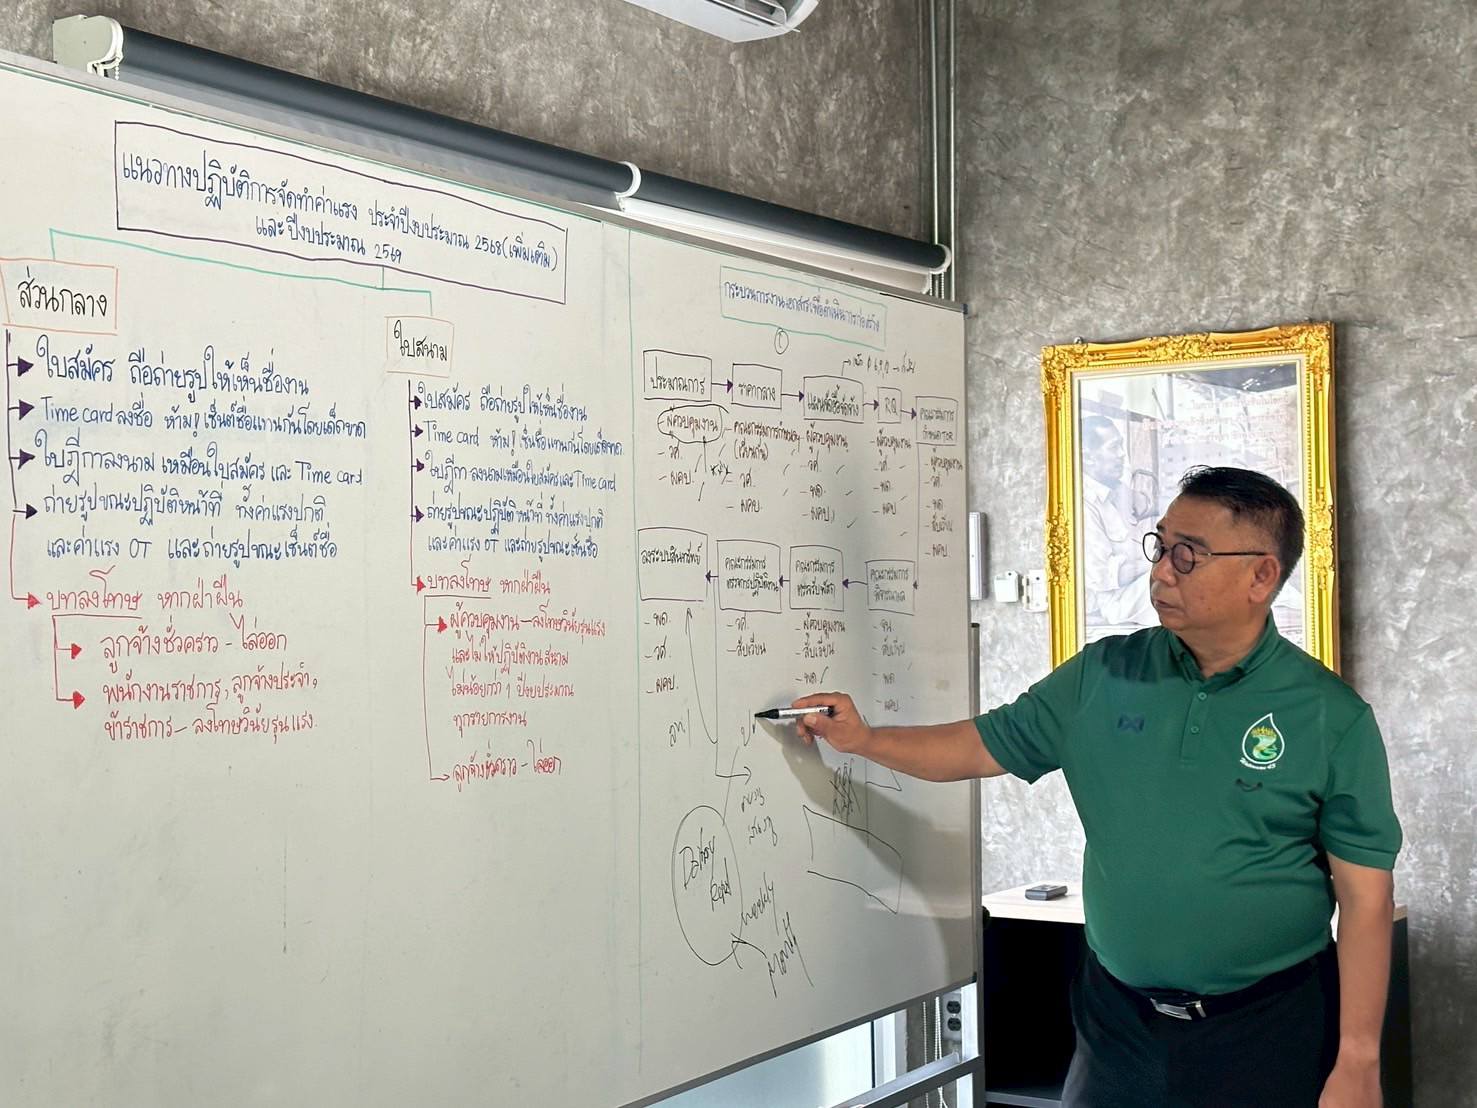 แนวทางปฏิบัติการจัดทำค่าแรง ประจำปีงบประมาณ 2568 (เพิ่มเติม)
และปีงบประมาณ 2569
ส่วนกลาง
ใบสมัคร ถือถ่ายรูปให้เห็นชื่องาน
Time card ลงชื่อ ห้าม! เซ็นต์ชื่อแทนกันโดยเด็ดขาด
ใบฎีกาลงนาม เหมือนใบสมัคร และ Time card
ถ่ายรูปขณะปฏิบัติหน้าที่ ทั้งค่าแรงปกติ
และค่าแรง OT และถ่ายรูปขณะเซ็นต์ชื่อ
บทลงโทษ หากฝ่าฝืน
ลูกจ้างชั่วคราว - ไล่ออก
พนักงานราชการ, ลูกจ้างประจำ,
ข้าราชการ - ลงโทษวินัยรุนแรง.
ใบสนาม
ใบสมัคร ถือถ่ายรูปให้เห็นชื่องาน
Time card ห้าม! เซ็นชื่อแทนกันโดยเด็ดขาด
ใบฎีกา ลงนามเหมือนใบสมัครและ Time card
ถ่ายรูปขณะปฏิบัติหน้าที่ ทั้งค่าแรงปกติ
และค่าแรง OT และถ่ายรูปขณะเซ็นชื่อ
บทลงโทษ หากฝ่าฝืน
ผู้ควบคุมงาน - ลงโทษวินัยรุนแรง
และไม่ให้ปฏิบัติงานสนาม
ไม่น้อยกว่า 1 ปีงบประมาณ
ทุกรายการงาน
ลูกจ้างชั่วคราว - ไล่ออก
กระบวนการงานเอกสารเพื่อดำเนินการก่อสร้าง
ประมาณการ
- ผู้ควบคุมงาน
- วศ.
- ผคบ.
ราคากลาง
- คณะกรรมการกำหนด
- วศ.
- ผคบ.
แผนจัดซื้อจัดจ้าง
- ผู้ควบคุมงาน
- วศ.
- พด.
- ผคบ.
RQ
- ผู้ควบคุมงาน
- วศ.
- พด.
- ผคบ
คณะกรรมการ
กำหนด TOR
- ผู้ควบคุมงาน
- วศ.
- พด
- ผคบ
คณะกรรมการ
พิจารณาผล
- พด
- ผคบ.
คณะกรรมการ
ตรวจรับพัสดุ
- ผู้ควบคุมงาน
- พด
คณะกรรมการ
ตรวจการปฏิบัติงาน
- วศ.
ลงระบบสินทรัพย์
- พด.
- วศ.
- ผคบ.
weekly